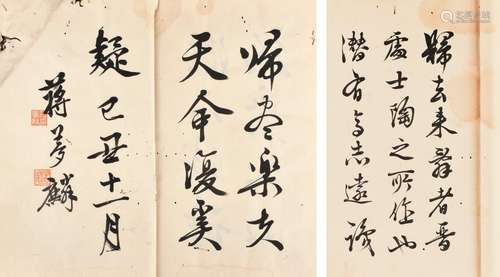 歸去来辭者晋
處士陶之所作也
潛有高志遠識
歸盡樂夫
天命復奚
疑己丑十一月
蒋夢麟